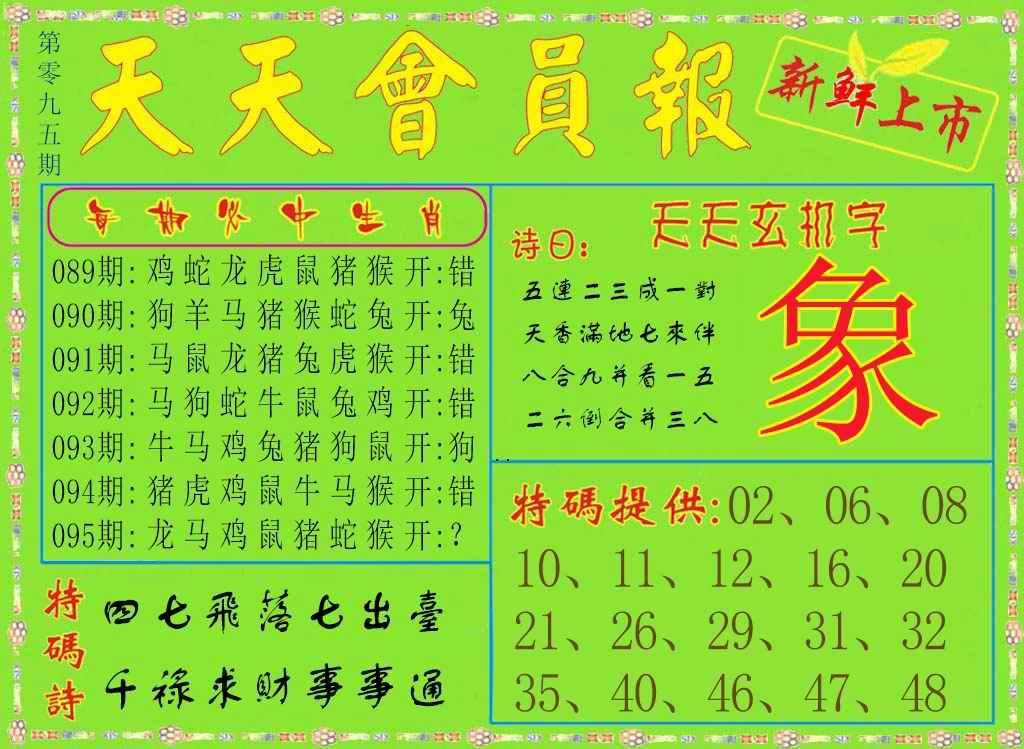 第零九五期
天天會員報
新鮮上市
每期必中生肖
089期: 鸡 蛇 龙 虎 鼠 猪 猴 开:错
090期: 狗 羊 马 猪 猴 蛇 兔 开:兔
091期: 马 鼠 龙 猪 兔 虎 猴 开:错
092期: 马 狗 蛇 牛 鼠 兔 鸡 开:错
093期: 牛 马 鸡 兔 猪 狗 鼠 开:狗
094期: 猪 虎 鸡 鼠 牛 马 猴 开:错
095期: 龙 马 鸡 鼠 猪 蛇 猴 开:?
特碼詩
四七飛落七出臺
千祿求財事事通
天天玄机字
诗曰:
五連二三成一對
天香滿地七來伴
八合九并看一五
二六倒合并三八
象
特碼提供:02、06、08
10、11、12、16、20
21、26、29、31、32
35、40、46、47、48